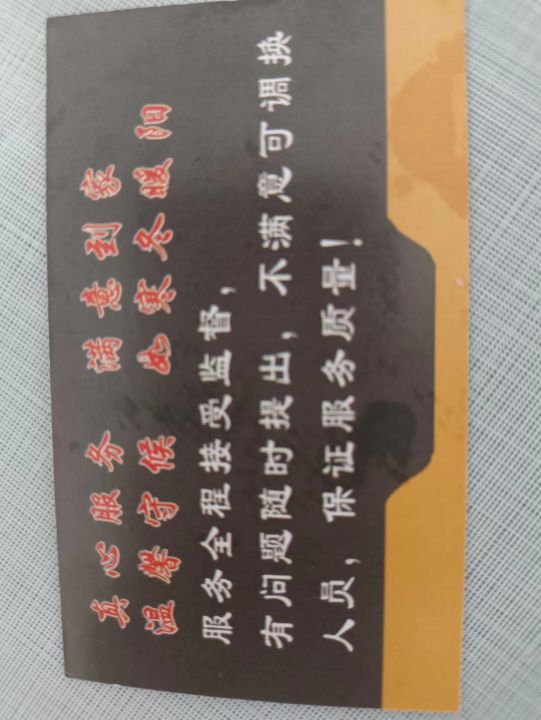 真心服务 满意到家
温馨守候 如寒冬暖阳
服务全程接受监督，
有问题随时提出，不满意可调换
人员，保证服务质量！